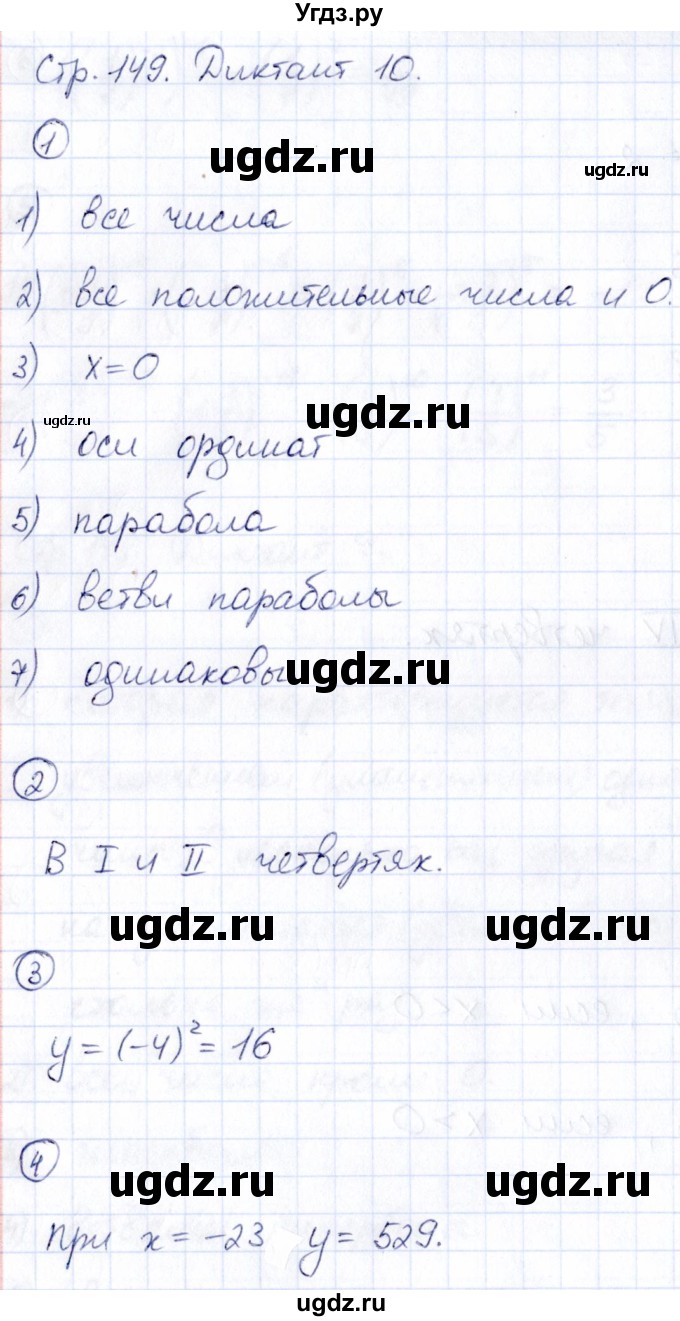 Угдз.ру
Стр. 149. Диктант 10.
1
ugdz.ru
ugdz.ru
1) все числа
2) все положительные числа и 0.
3) x = 0
ugdz.ru
ugdz.ru
4) оси ординат
5) парабола
6) ветви параболы
7) одинаковы
ugdz.ru
2
В I и II четвертях.
ugdz.ru
ugdz.ru
3
y = (-4)² = 16
4
ugdz.ru
ugdz.ru
при x = -23 y = 529.
ugdz.ru